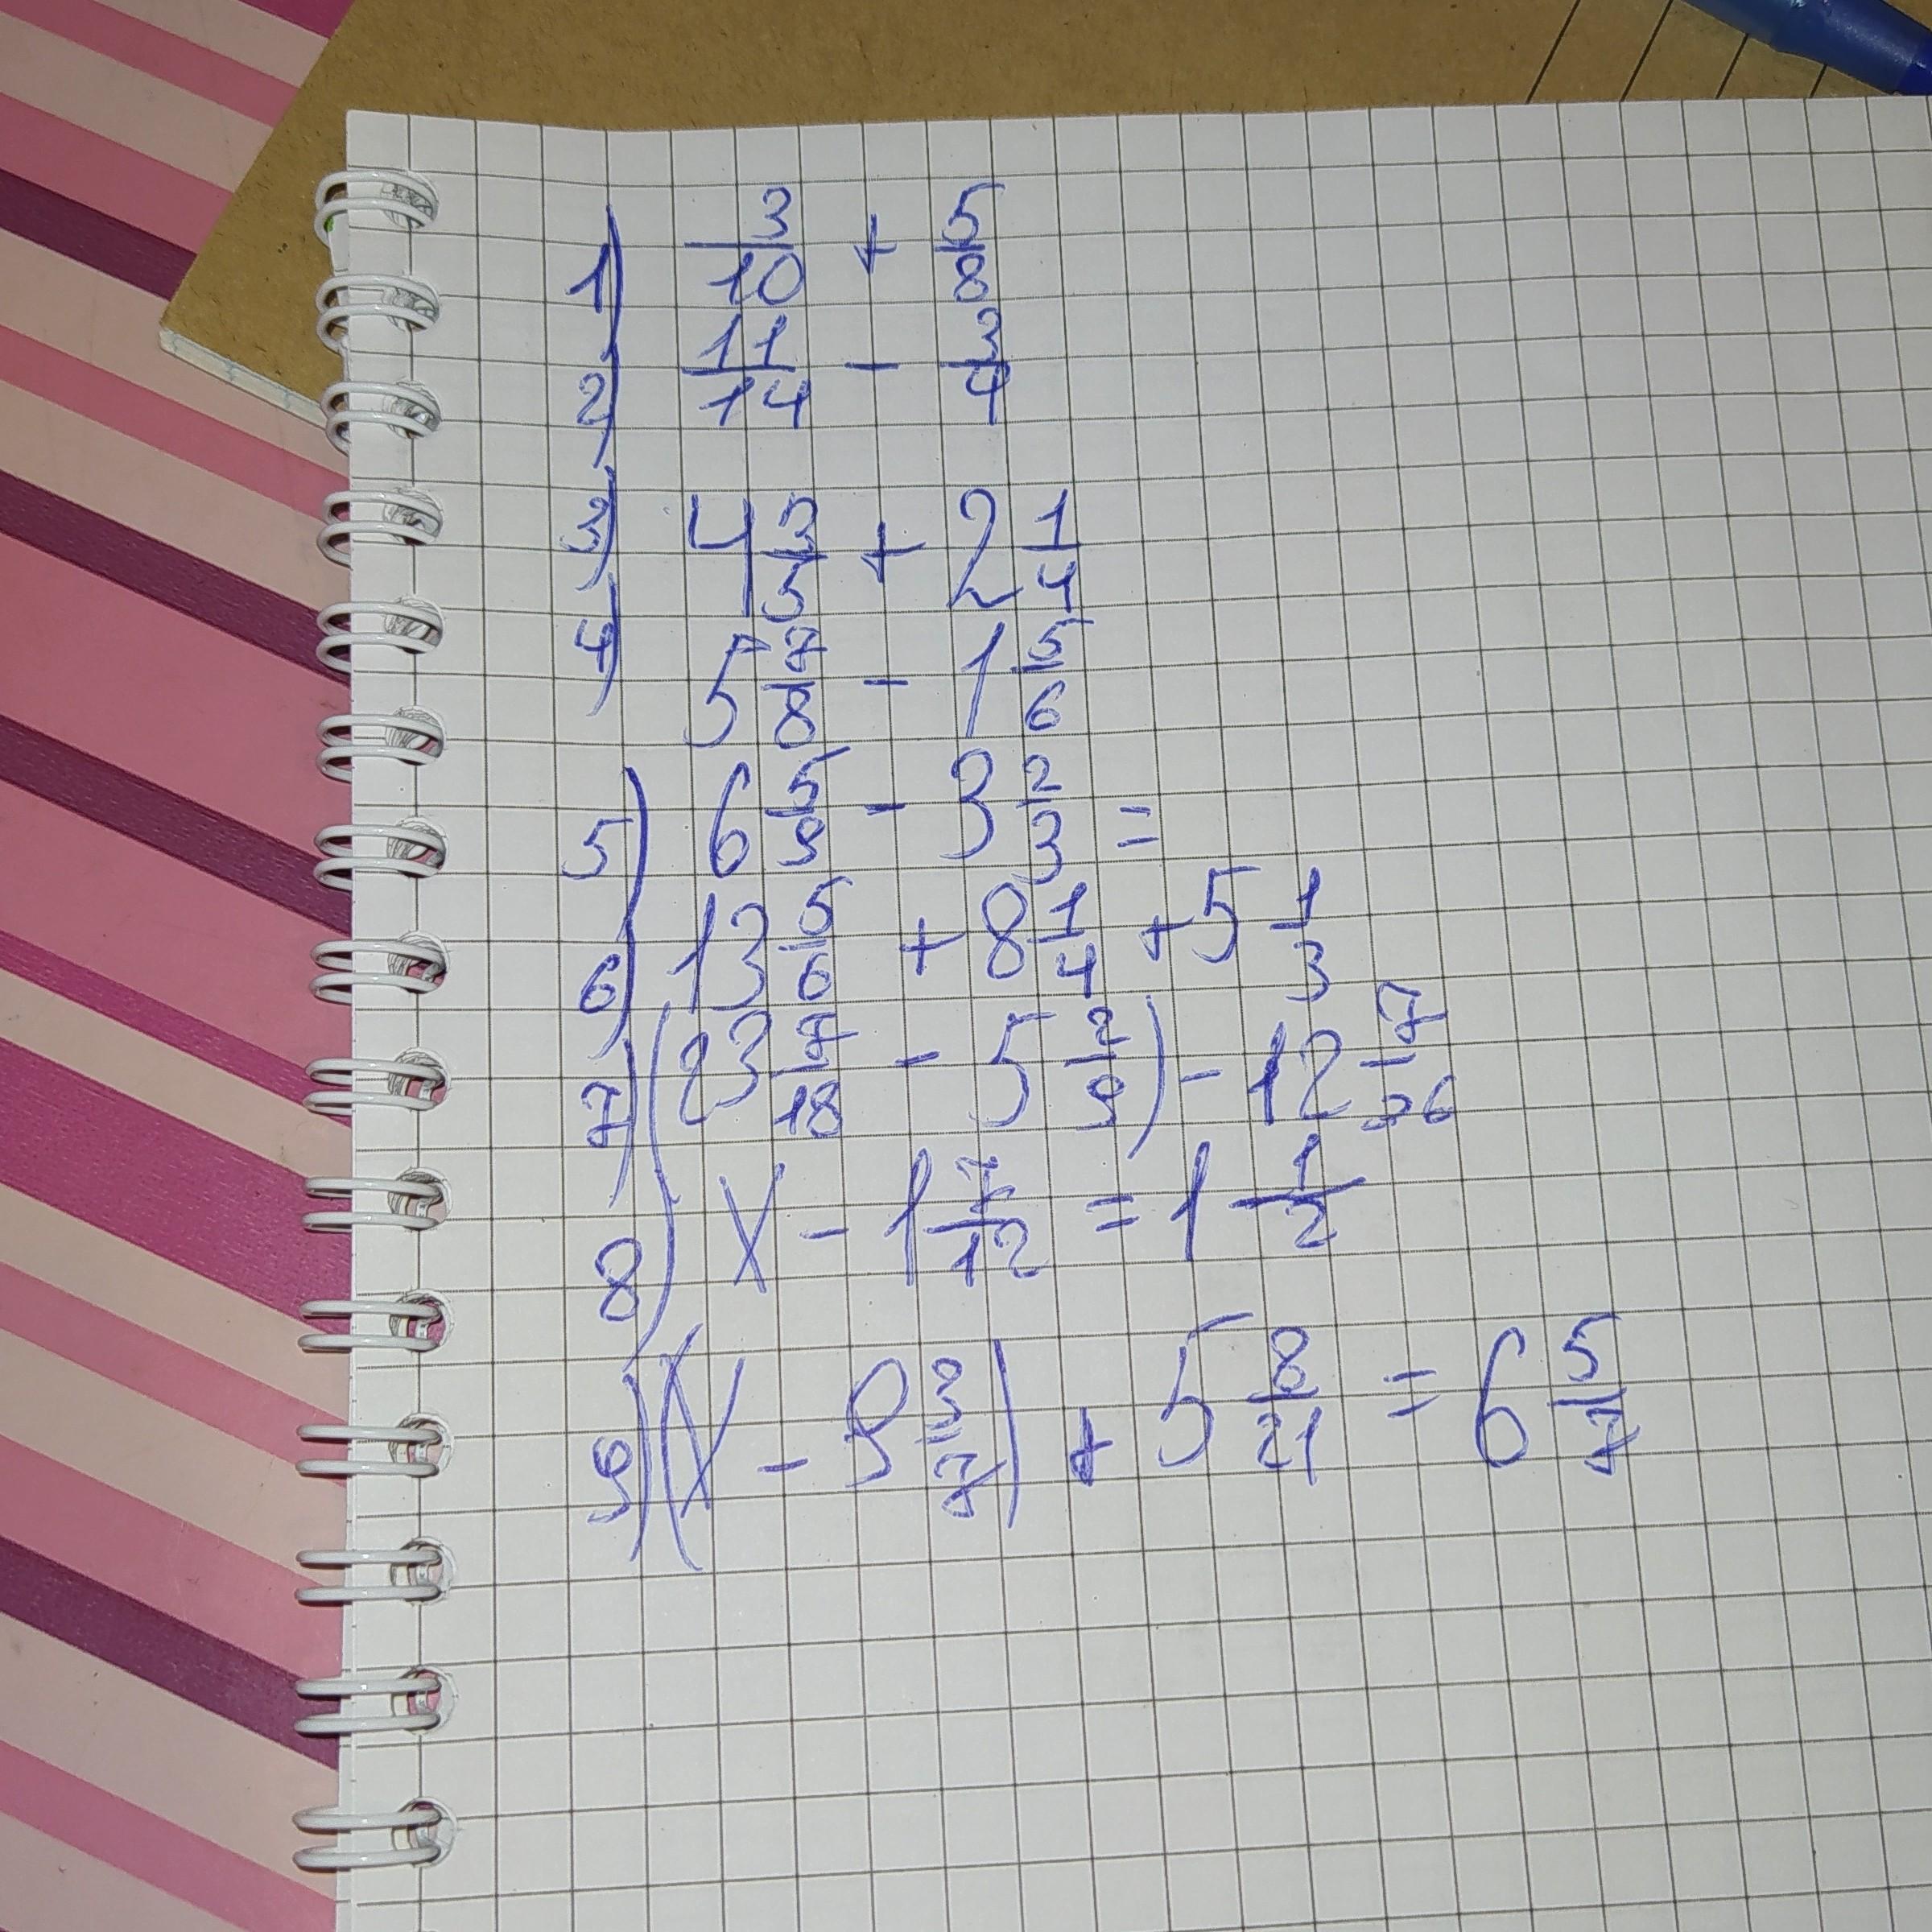 1) 3/10 + 5/8
2) 11/14 - 3/4
3) 4 3/5 + 2 1/4
4) 5 7/8 - 1 5/6
5) 6 5/9 - 3 2/3 =
6) 13 5/6 + 8 1/4 + 5 1/3
7) (23 7/18 - 5 2/9) - 12 7/36
8) x - 1 7/12 = 1 1/2
9) (x - 9 3/7) + 5 8/21 = 6 5/7